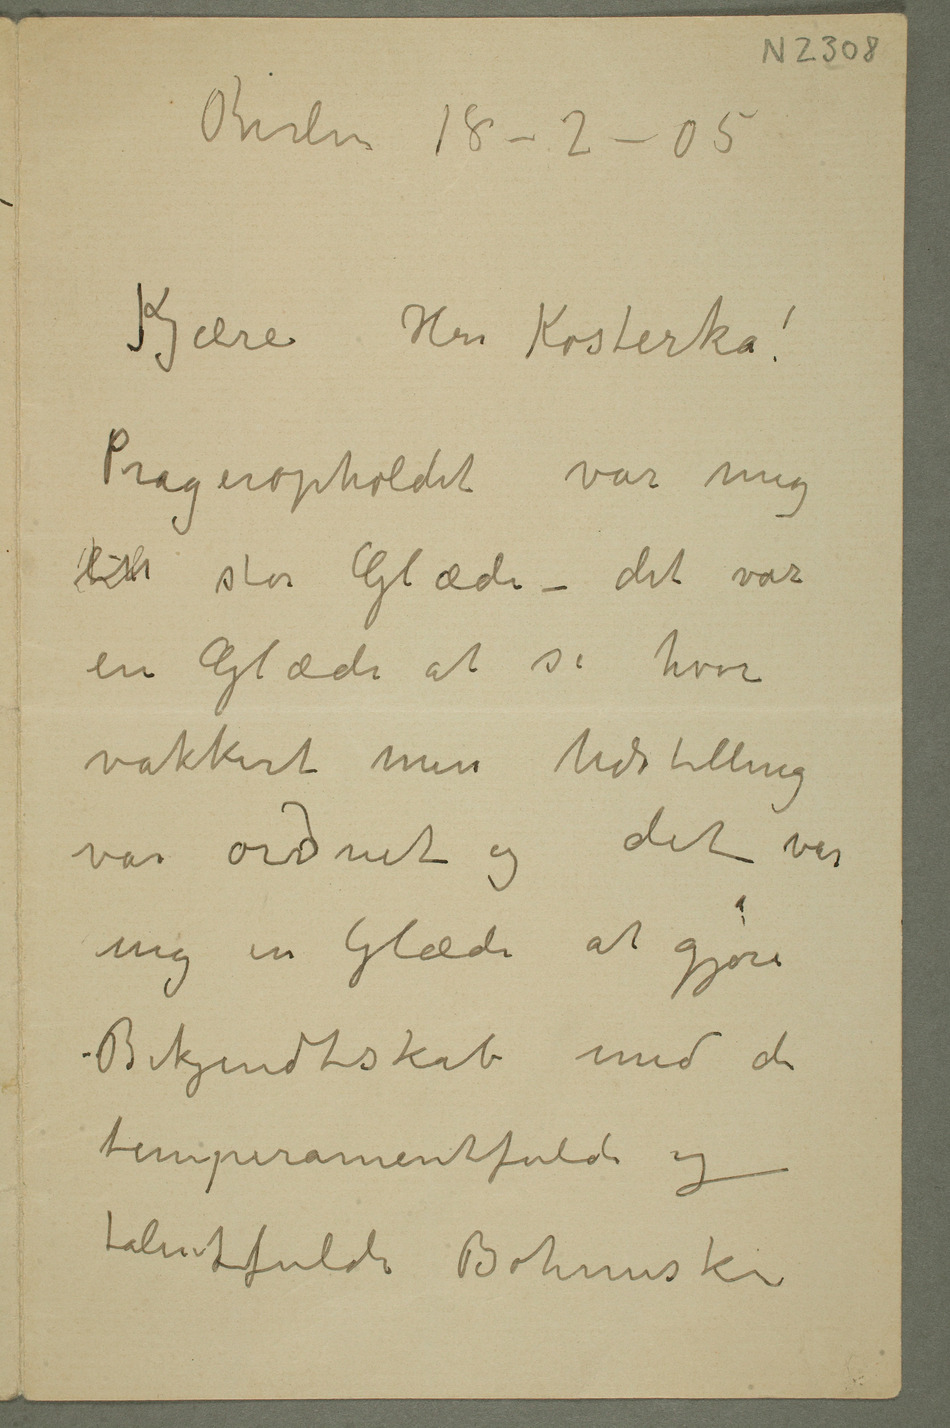 N 2308
Berlin 18-2-05
Kjære Herr Kosterka!
Prageropholdet var mig
til stor Glæde – det var
en Glæde at se hvor
vakkert min Udstilling
var ordnet og det var
mig en Glæde at gjøre
Bekjendtskab med de
temperamentfulde og
talentfulde Bøhmiske